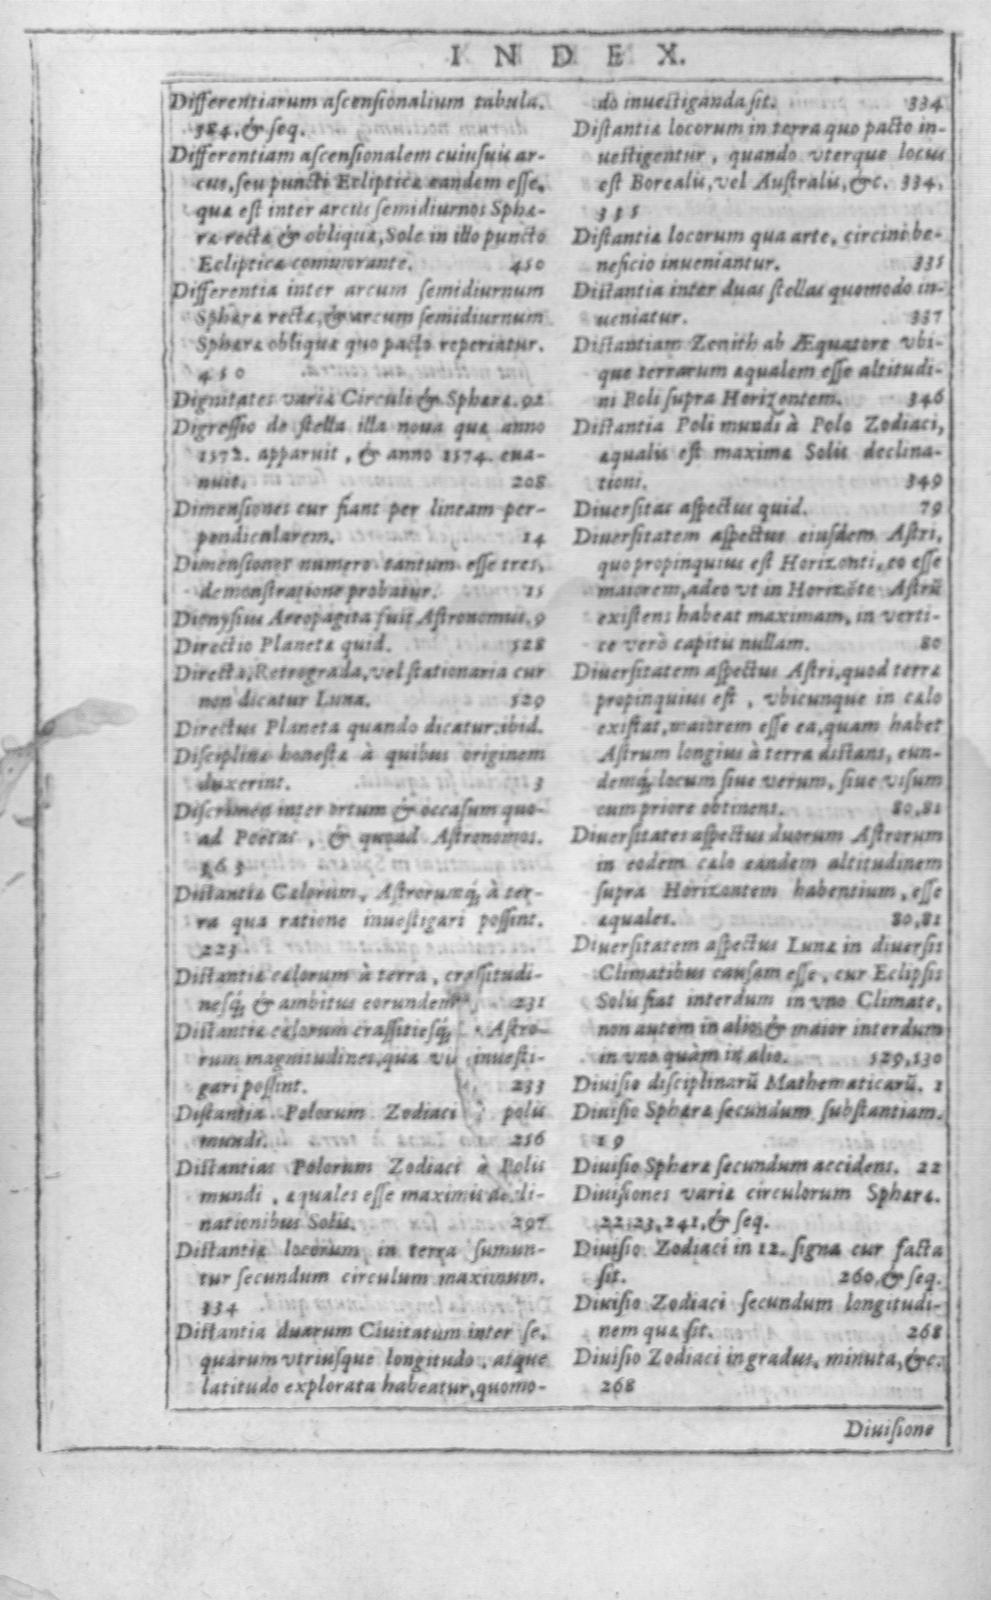 INDEX.
Differentiarum ascensionalium tabula.
384. & seq.
Differentiam ascensionalem cuiusuis ar-
cus, seu puncti Eclipticæ eandem esse,
quæ est inter arcus semidiurnos Sphæ-
ræ rectæ & obliquæ, Sole in illo puncto
Eclipticæ commorante. 450
Differentia inter arcum semidiurnum
Sphæræ rectæ, & arcum semidiurnum
Sphæræ obliquæ quo pacto reperiatur.
450
Dignitates variæ Circuli & Sphæræ. 92
Digressio de stella illa noua quæ anno
1572. apparuit, & anno 1574. eua-
nuit. 208
Dimensiones cur fiant per lineam per-
pendicularem. 14
Dimensiones numero tantum esse tres,
demonstratione probatur. 15
Dionysius Areopagita fuit Astronomus. 9
Directio Planetæ quid. 528
Directa, Retrograda, vel stationaria cur
non dicatur Luna. 529
Directus Planeta quando dicatur. ibid.
Disciplinæ honestæ à quibus originem
duxerint. 3
Discrimen inter ortum & occasum quo-
ad Poetas, & quoad Astronomos.
363
Distantiæ Cælorum, Astrorumq́; à ter-
ra qua ratione inuestigari possint.
223
Distantiæ cælorum à terra, crassitudi-
nesq́; & ambitus eorundem 231
Distantiæ cælorum crassitiesq́; Astro-
rum magnitudines, qua vi inuesti-
gari possint. 233
Distantia Polorum Zodiaci polis
mundi. 256
Distantias Polorum Zodiaci à Polis
mundi, æquales esse maximis decli-
nationibus Solis. 297
Distantiæ locorum in terra sumun-
tur secundum circulum maximum.
334
Distantia duarum Ciuitatum inter se,
quarum vtriusque longitudo, atque
latitudo explorata habeatur, quomo-
do inuestiganda sit. 334
Distantiæ locorum in terra quo pacto in-
uestigentur, quando vterque locus
est Borealis, vel Australis, &c. 334,
335
Distantiæ locorum qua arte, circini be-
neficio inueniantur. 335
Distantia inter duas stellas quomodo in-
ueniatur. 337
Distantiam Zenith ab Æquatore vbi-
que terrarum æqualem esse altitudi-
ni Poli supra Horizontem. 346
Distantia Poli mundi à Polo Zodiaci,
æqualis est maximæ Solis declina-
tioni. 349
Diuersitas aspectus quid. 79
Diuersitatem aspectus eiusdem Astri,
quo propinquius est Horizonti, eo esse
maiorem, adeo vt in Horizõte Astrũ
existens habeat maximam, in verti-
ce verò capitis nullam. 80
Diuersitatem aspectus Astri, quod terræ
propinquius est, vbicunque in cælo
existat, maiorem esse ea, quam habet
Astrum longius à terra distans, eun-
demq́; locum siue verum, siue visum
cum priore obtinens. 80,81
Diuersitates aspectus duorum Astrorum
in eodem cælo eandem altitudinem
supra Horizontem habentium, esse
æquales. 80,81
Diuersitatem aspectus Lunæ in diuersis
Climatibus causam esse, cur Eclipsis
Solis fiat interdum in vno Climate,
non autem in alio; & maior interdum
in vno quàm in alio. 529,530
Diuisio disciplinarũ Mathematicarũ. 1
Diuisio Sphæræ secundum substantiam.
19
Diuisio Sphæræ secundum accidens. 22
Diuisiones variæ circulorum Sphæræ.
22.23.241, & seq.
Diuisio Zodiaci in 12. signa cur facta
sit. 260, & seq.
Diuisio Zodiaci secundum longitudi-
nem quæ sit. 268
Diuisio Zodiaci in gradus, minuta, &c.
268
Diuisione